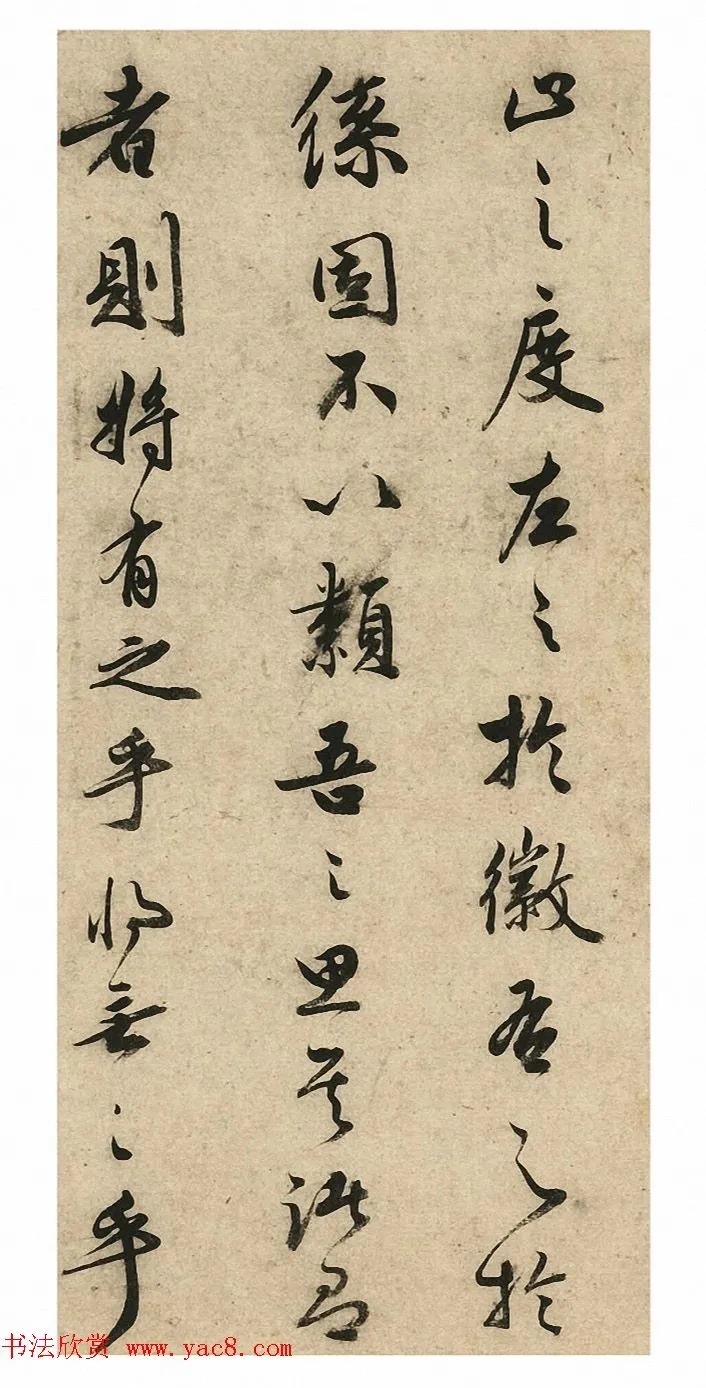 之度左之於徽之於
固不以類吾之思其
者則將有之乎將無之乎
书法欣赏 www.yac8.com